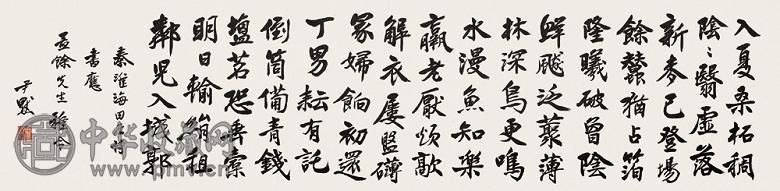 入夏桑柘稠
陰〻翳虛落
新麥已登場
餘蠶猶占箔
隆曦破曾陰
鮮飈泛藂薄
林深鳥更鳴
水漫魚知樂
羸老厭煩歊
解衣屢盤礴
冢婦餉初還
丁男耘有託
倒筒備青錢
塩茗恐垂索
明日輸絹租
鄰兒入城郭
秦淮海田居詩
書應
孟餘先生雅令
尹默
中华收藏网